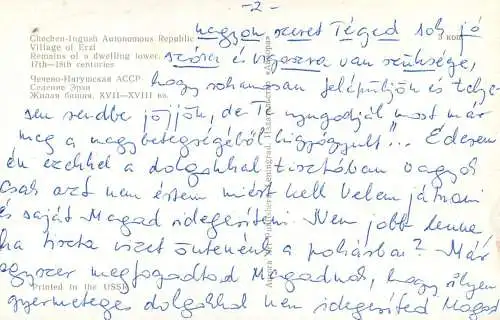 -2-
Checheno-Ingush Autonomous Republic
Village of Erzi
Remains of a dwelling tower.
17th-18th centuries
Чечено-Ингушская АССР
Селение Эрзи
Жилая башня. XVII—XVIII вв.
3 коп.
nagyon szeret Téged sok jó
szóra és vigaszra van szüksége,
hogy rohamosan felépüljön és telje-
sen rendbe jöjjön, de Te nyugodjál most már
meg a nagybetegségéből "kigyógyult"... Édesem
én ezekkel a dolgokkal tisztában vagyok
csak azt nem értem miért kell Velem játszani
és saját Magad idegesíteni. Nem jobb lenne
ha tiszta vizet öntenénk a pohárba? Már
egyszer megfogadtad Magadnak, hogy ilyen
gyermeteg dolgokkal nem idegesíted Magad
Printed in the USSR